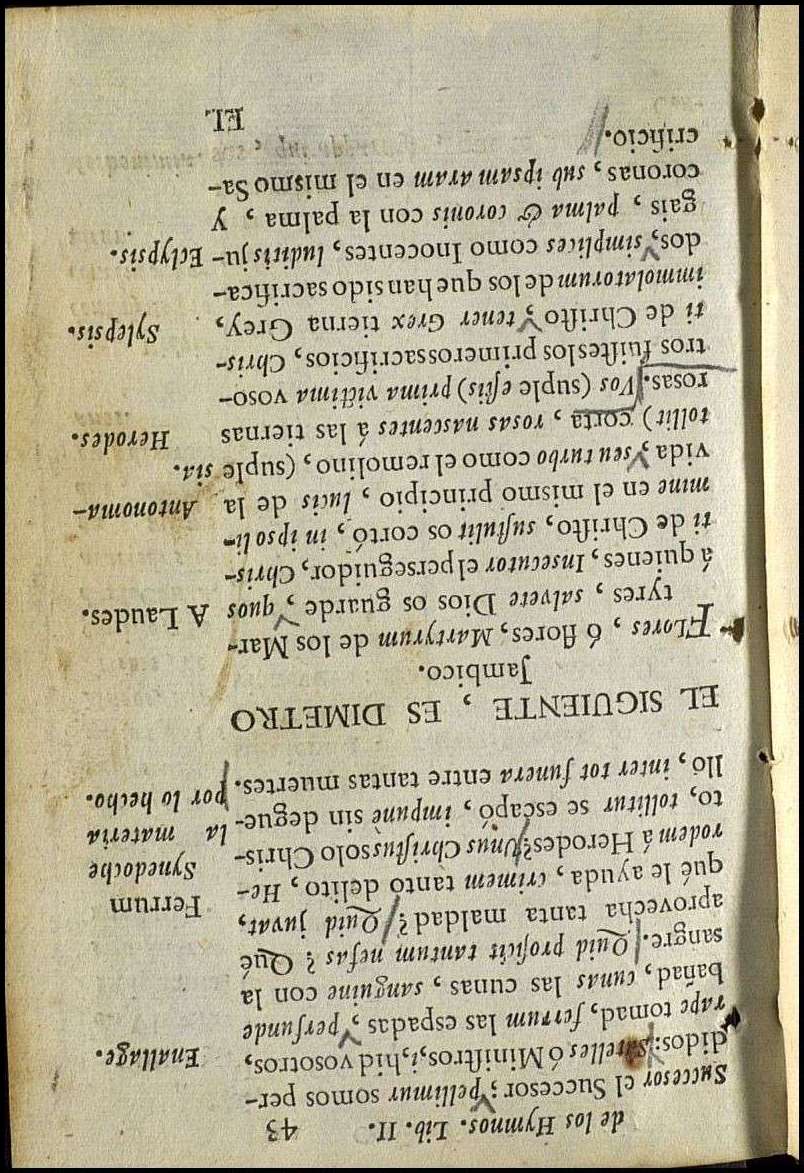 de los Hymnos. Lib. II. 43
Successor el Successor; pellimur somos per-
didos: Satelles ó Miniſtros, i, hid vosotros,
Enallage.
rape tomad, ferrum las espadas, perfunde
bañad, cunas las cunas, sanguine con la
sangre. Quid proficit tantum nefas? Qué
aprovecha tanta maldad? Quid juvat,
Ferrum
qué le ayuda, crimem tanto delito, He-
Synedoche
rodem á Herodes? Unus Chriſtus solo Chris-
la materia
to, tollitur se escapó, impunè sin degue-
por lo hecho.
lló, inter tot funera entre tantas muertes.
EL SIGUIENTE, ES DIMETRO
Jambico.
FLores, ó flores, Martyrum de los Mar-
tyres, salvete Dios os guarde, quos
A Laudes.
á quienes, Insecutor el perseguidor, Chris-
ti de Chriſto, suſtulit os cortó, in ipso li-
mine en el mismo principio, lucis de la
Antonoma-
vida, seu turbo como el remolino, (suple
sia.
tollit) corta, rosas nascentes á las tiernas
Herodes.
rosas. Vos (suple eſtis) prima victima voso-
tros fuiſtes los primeros sacrificios, Chris-
ti de Chriſto, tener Grex tierna Grey,
Sylepsis.
immolatorum de los que han sido sacrifica-
dos, simplices como Inocentes, luditis ju-
Eclypsis.
gais, palma & coronis con la palma, y
coronas, sub ipsam aram en el mismo Sa-
crificio.
EL